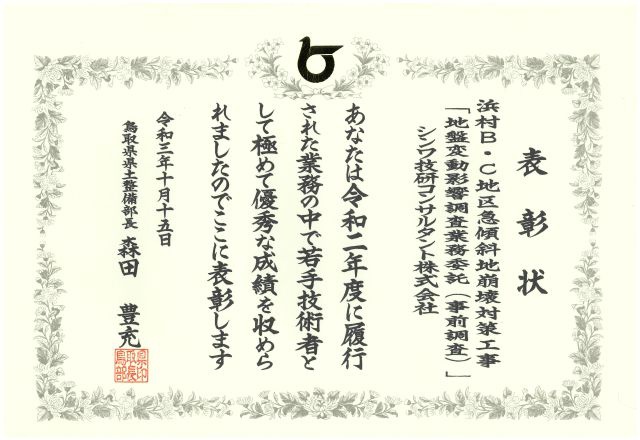 表彰状
浜村B・C地区急傾斜地崩壊対策工事
「地盤変動影響調査業務委託（事前調査）」
シンワ技研コンサルタント株式会社
あなたは令和二年度に履行
された業務の中で若手技術者と
して極めて優秀な成績を収めら
れましたのでここに表彰します
令和三年十月十五日
鳥取県県土整備部長 森田 豊充